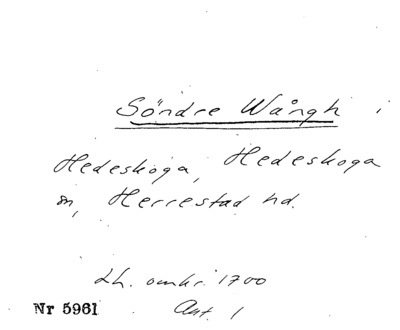 Söndre Wångh i
Hedeskoga, Hedeskoga
sn, Herrestad hd.
Lh. omkr. 1700
Ant. 1
Nr 5961